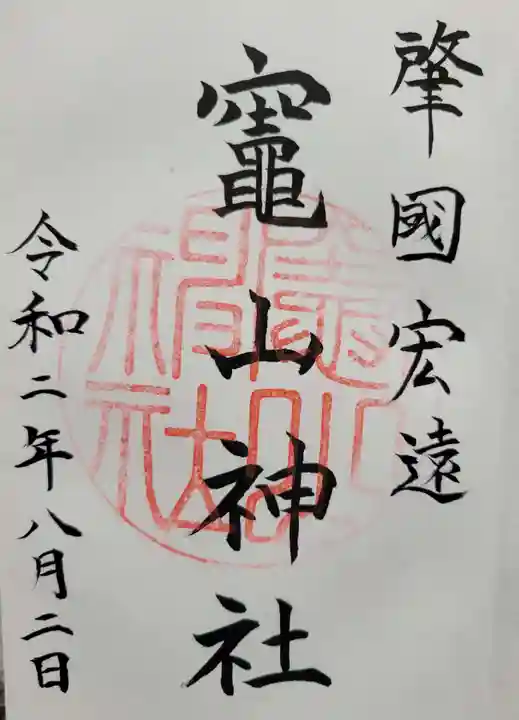 肇國宏遠
竈山神社
令和二年八月二日
竈山神社